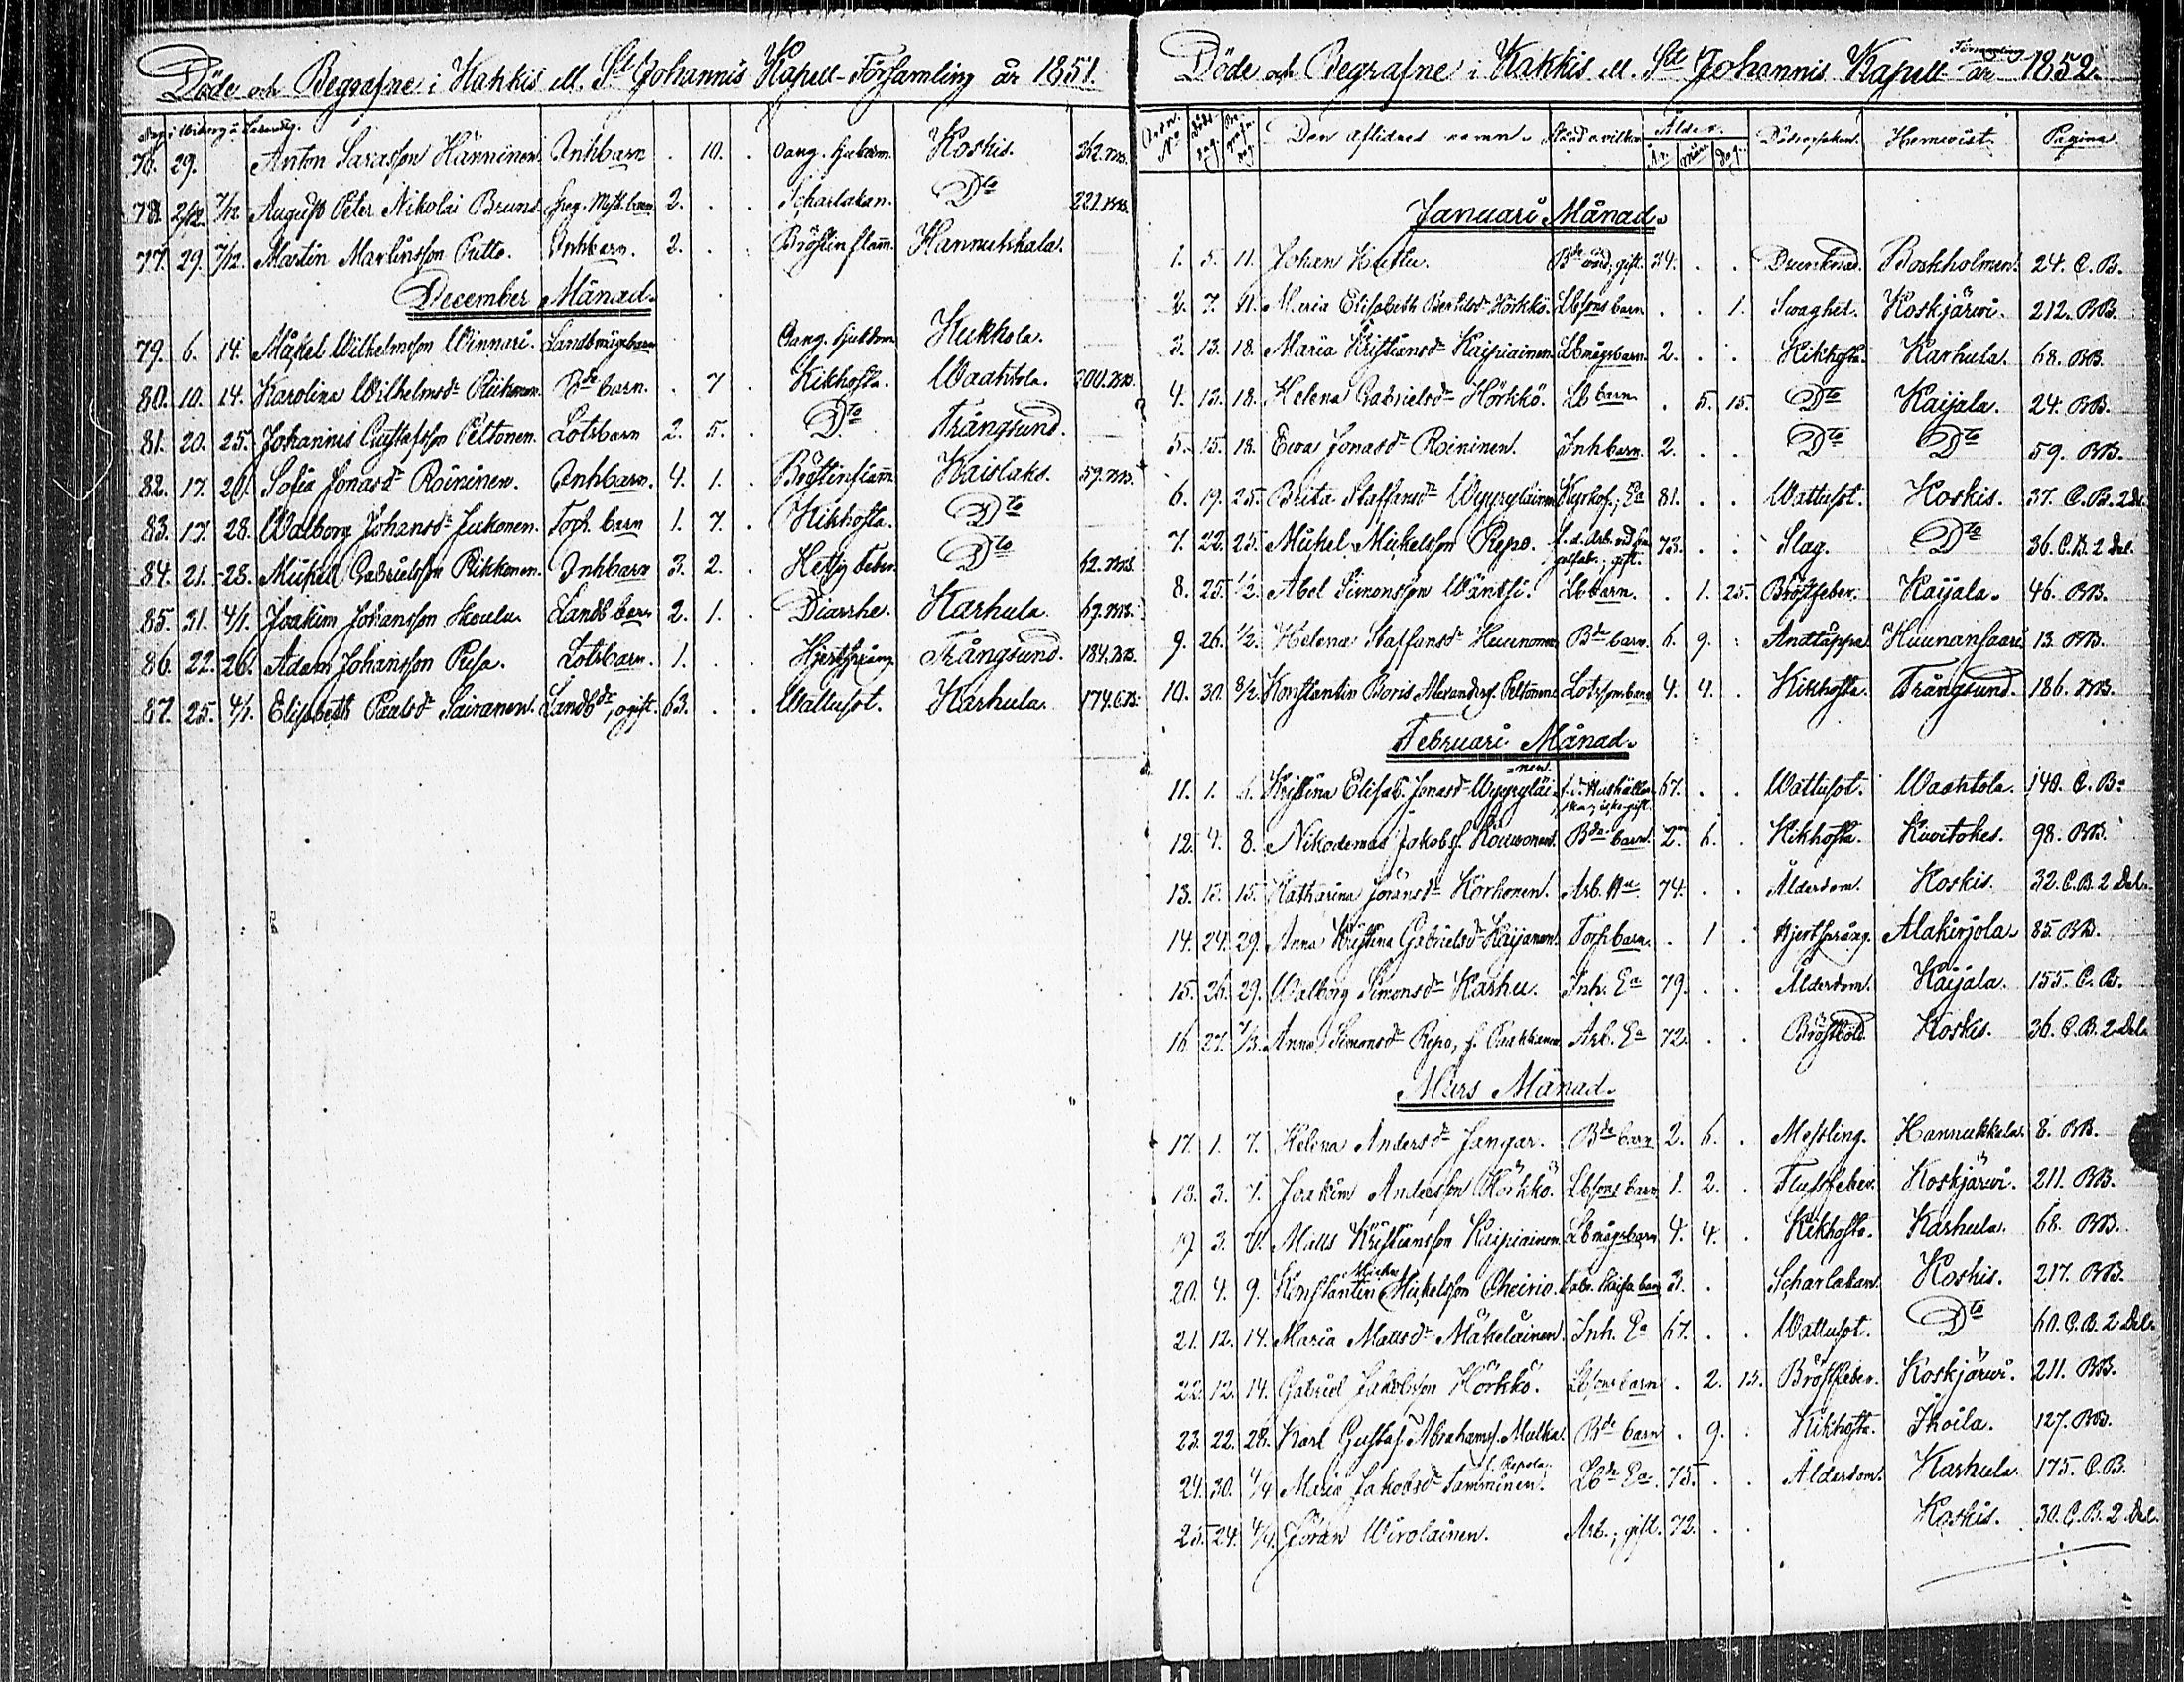 Döde och Begrafne i Kakkis ell. S:t Johannis Kapell-Församling år 1851.
76. 29. Anton Sarasson Hänninen. Inhbarn . 10. . Oang. sjukdom. Koskis. 
78. 2/12. 7/12. August Peter Nikolai Bruns. barn 2. . . Scharlakan. D:to 221. BB.
77. 29. 7/12. Martin Martinsson Putto. Inhbarn. 2. . . Bröstinflam. Hannukkala.
December Månad.
79. 6. 14. Mikel Wilhelmsson Winnari. Landbmågsbarn Oang. sjukdom Kukkola.
80. 10. 14. Karolina Wilhelmsd:r B:debarn. . 7 . Kikhosta. Waahtola. 200. BB.
81. 20. 25. Johannes Gustafsson Peltonen. Lotsbarn 2. 5. . D:to Trångsund.
82. 17. 26. Sofia Jonasd:r Roininen. Inhbarn. 4. 1. . Bröstinflam Kaislaks. 59. BB.
83. 17. 28. Walborg Johansd:r Jukonen. Torp. barn 1. 7. . Kikhosta. D:to
84. 21. 28. Mikel Gabrielsson Pikkonen. Inhbarn 3. 2. . Hetsig feber. D:to 62. BB.
85. 31. 4/1. Joakim Johansson Skoulu Landb barn 2. 1. . Diarrhe. Karhula. 67. BB.
86. 22. 26. Adam Johansson Pusa. Lotsbarn. 1. . . Hjertsprång Trångsund. 184. BB.
87. 25. 4/1. Elisabeth Paulsd:r Sairanen. Landb:dr, ogift. 63. . . Wattusot. Karhula. 174. C.B.
Döde och Begrafne i Kakkis ell. S:te Johannis Kapell Församling år 1852.
Ordn. N:o Döds dag. Begrafn. dag. Den Aflidnes namn. Stånd o. vilkor Ålder. År. Mån. Dag. Dödsorsaken. Hemvist. Pagina.
Januari Månad.
1. 5. 11. Johan Kuttu. gift. 34. . . Drunknad. Bockholmen. 24. C.B.
2. 7. 11. Maria Elisabeth Hörkkö. Lbsons barn . . 1. Swaghet. Koskjärwi. 212. BB.
3. 13. 18. Maria Kristiansd:r Kaipiainen Lbmågsbarn. 2. . . Kikhosta. Karhula. 68. BB.
4. 13. 18. Helena Gabrielsd:r Hörkkö. Lb barn . 5. 15. D:to Kaijala. 24. BB.
5. 15. 18. Ewa Jonasd:r Roininen. Inhbarn. 2. . . D:to D:to 59. BB.
6. 19. 25. Brita Staffansd:r Wyyryläinen E:a 81. . . Wattusot. Koskis. 37. C.B. 2 Del.
7. 22. 25. Mickel Mickelsson Repo. f.d. Arb. gift. 73. . . Slag. D:to 36. C.B. 2 Del.
8. 25. 1/2. Abel Simonsson Wäntsi. Lbbarn. . 1. 25. Bröstfeber. Kaijala. 46. BB.
9. 26. 1/2. Helena Staffansd:r Huunonen B:debarn. 6. 9. . Andtäppa Huunansaari. 13. BB.
10. 30. 8/2. Konstantin Boris Alexanders. Peltonen Lotssonbarn 4. 4. . Kikhosta. Trångsund. 186. BB.
Februari Månad.
11. 1. 6. Kristina Elisab. Jonasd:r Wyyryläinen. f.d. Hushållerska, icke gift. 67. . . Wattusot. Waahtola. 140. C.B.
12. 4. 8. Nikodemus Jakobs. Kouwonen. B:debarn. 2. 6. . Kikhosta. Kuvitokes. 98. BB.
13. 13. 15. Katharina Jöransd:r Korhonen. Arb. 74. . . Ålderdom. Koskis. 32. C.B. 2 Del.
14. 24. 29. Anna Kristina Gabrielsd:r Kaijanen. Torpbarn. . 1 . Hjertsprång. Alakirjola. 85. BB.
15. 26. 29. Walborg Simonsd:r Karhu. Inh. E:a 79. . . Ålderdom. Kaijala. 155. C.B.
16. 27. 7/3. Anna Simonsd:r Repo, f. Arb. E:a 72. . . Bröstböld. Koskis. 36. C.B. 2 Del.
Mars Månad.
17. 1. 7. Helena Andersd:r Jangar. B:debarn 2. 6. . Messling. Hannukkala. 8. BB.
18. 3. 7. Joakim Andersson Hörkkö. Lbsons barn 1. 2. . Flussfeber. Koskjärwi. 211. BB.
19. 3. 7. Matts Kristiansson Kaipiainen. Lbmågsbarn 4. 4. . Kikhosta. Karhula. 68. BB.
20. 4. 9. Konstantin Mickelsson barn 3. . . Scharlakan. Koskis. 217. BB.
21. 12. 14. Maria Mattsd:r Mäkeläinen. Inh. E:a 67. . . Wattusot. D:to 60. C.B. 2 Del.
22. 12. 14. Gabriel Jakobsson Hörkkö. Lbsonsbarn . 2. 15. Bröstfeber. Koskjärwi. 211. BB.
23. 22. 28. Karl Gustaf Abrahams. Mulka. B:debarn . 9. . Kikhosta. Ihoila. 127. BB.
24. 30. 4/4 Maria Jakobsd:r Tamminen. f. Repola. Lb:de E:a. 75. . . Ålderdom. Karhula. 175. C.B.
25. 24. 4/4. Jöran Wirolainen. Arb., gift. 72. . . Koskis. 30. C.B. 2 Del.